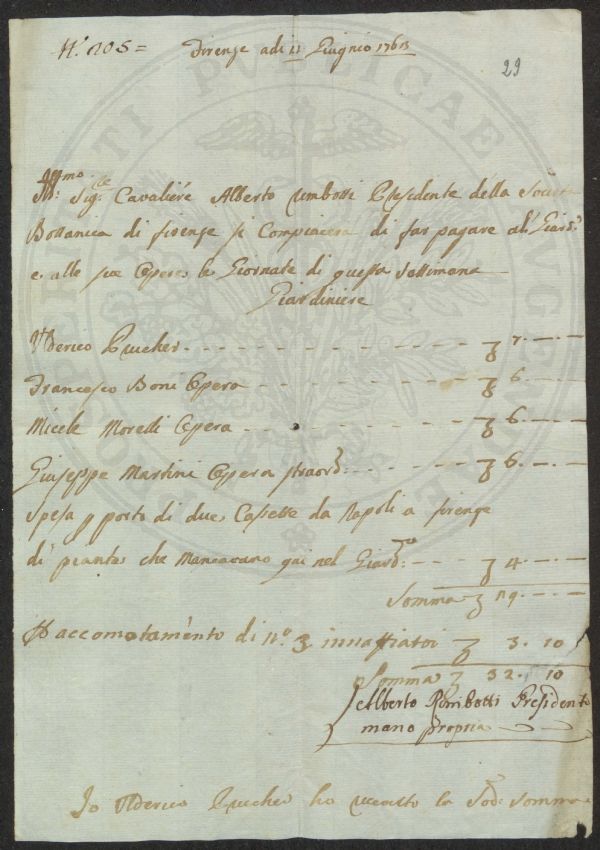 N.º 205 =
Firenze adi 11 Giugnio 1763
29
Ill:mo Sig:re Cavaliére Alberto Rimbotti Presidente della Società
Bottanica di firenze si Compiacerà di far pagare al Giard:e
e alle sue Opere le Giornate di questa Settimana
Giardiniere
Ulderico Prucher - - - - 7 - -
Francesco Boni Opera - - - - 6 - -
Micele Morelli Opera - - - - 6 - -
Giuseppe Martini Opera straord: - - - 6 - -
Spesa p porto di due Cassette da Napoli a firenze
di piante che Mancavano qui nel Giard:no - - - 4 - -
Somma 29 - -
P accomotamento di n.º 3 innaffiatoi 3. 10
Somma 32. 10
Alberto Rimbotti Presidente
mano propria
Io Ulderico Prucher ho riceuto la Sod: Somma
PROSPERITATI PVBLICAE AVGENDAE